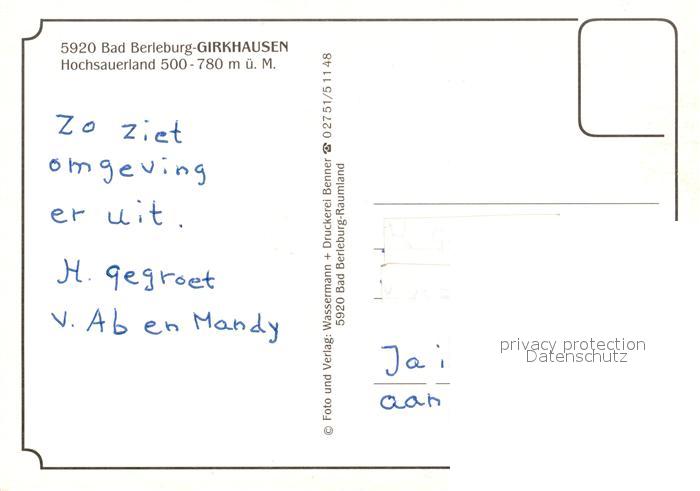 5920 Bad Berleburg-GIRKHAUSEN
Hochsauerland 500-780 m ü. M.
Zo ziet
omgeving
er uit.
H. gegroet
v. Ab en Mandy
© Foto und Verlag: Wassermann + Druckerei Benner ☎ 02751/51148
5920 Bad Berleburg-Raumland
Ja i
aan
privacy protection
Datenschutz